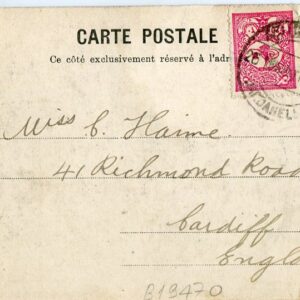 CARTE POSTALE
Ce côté exclusivement réservé à l'adr
Miss C. Haime
41 Richmond Road
Cardiff
Engla
B19470